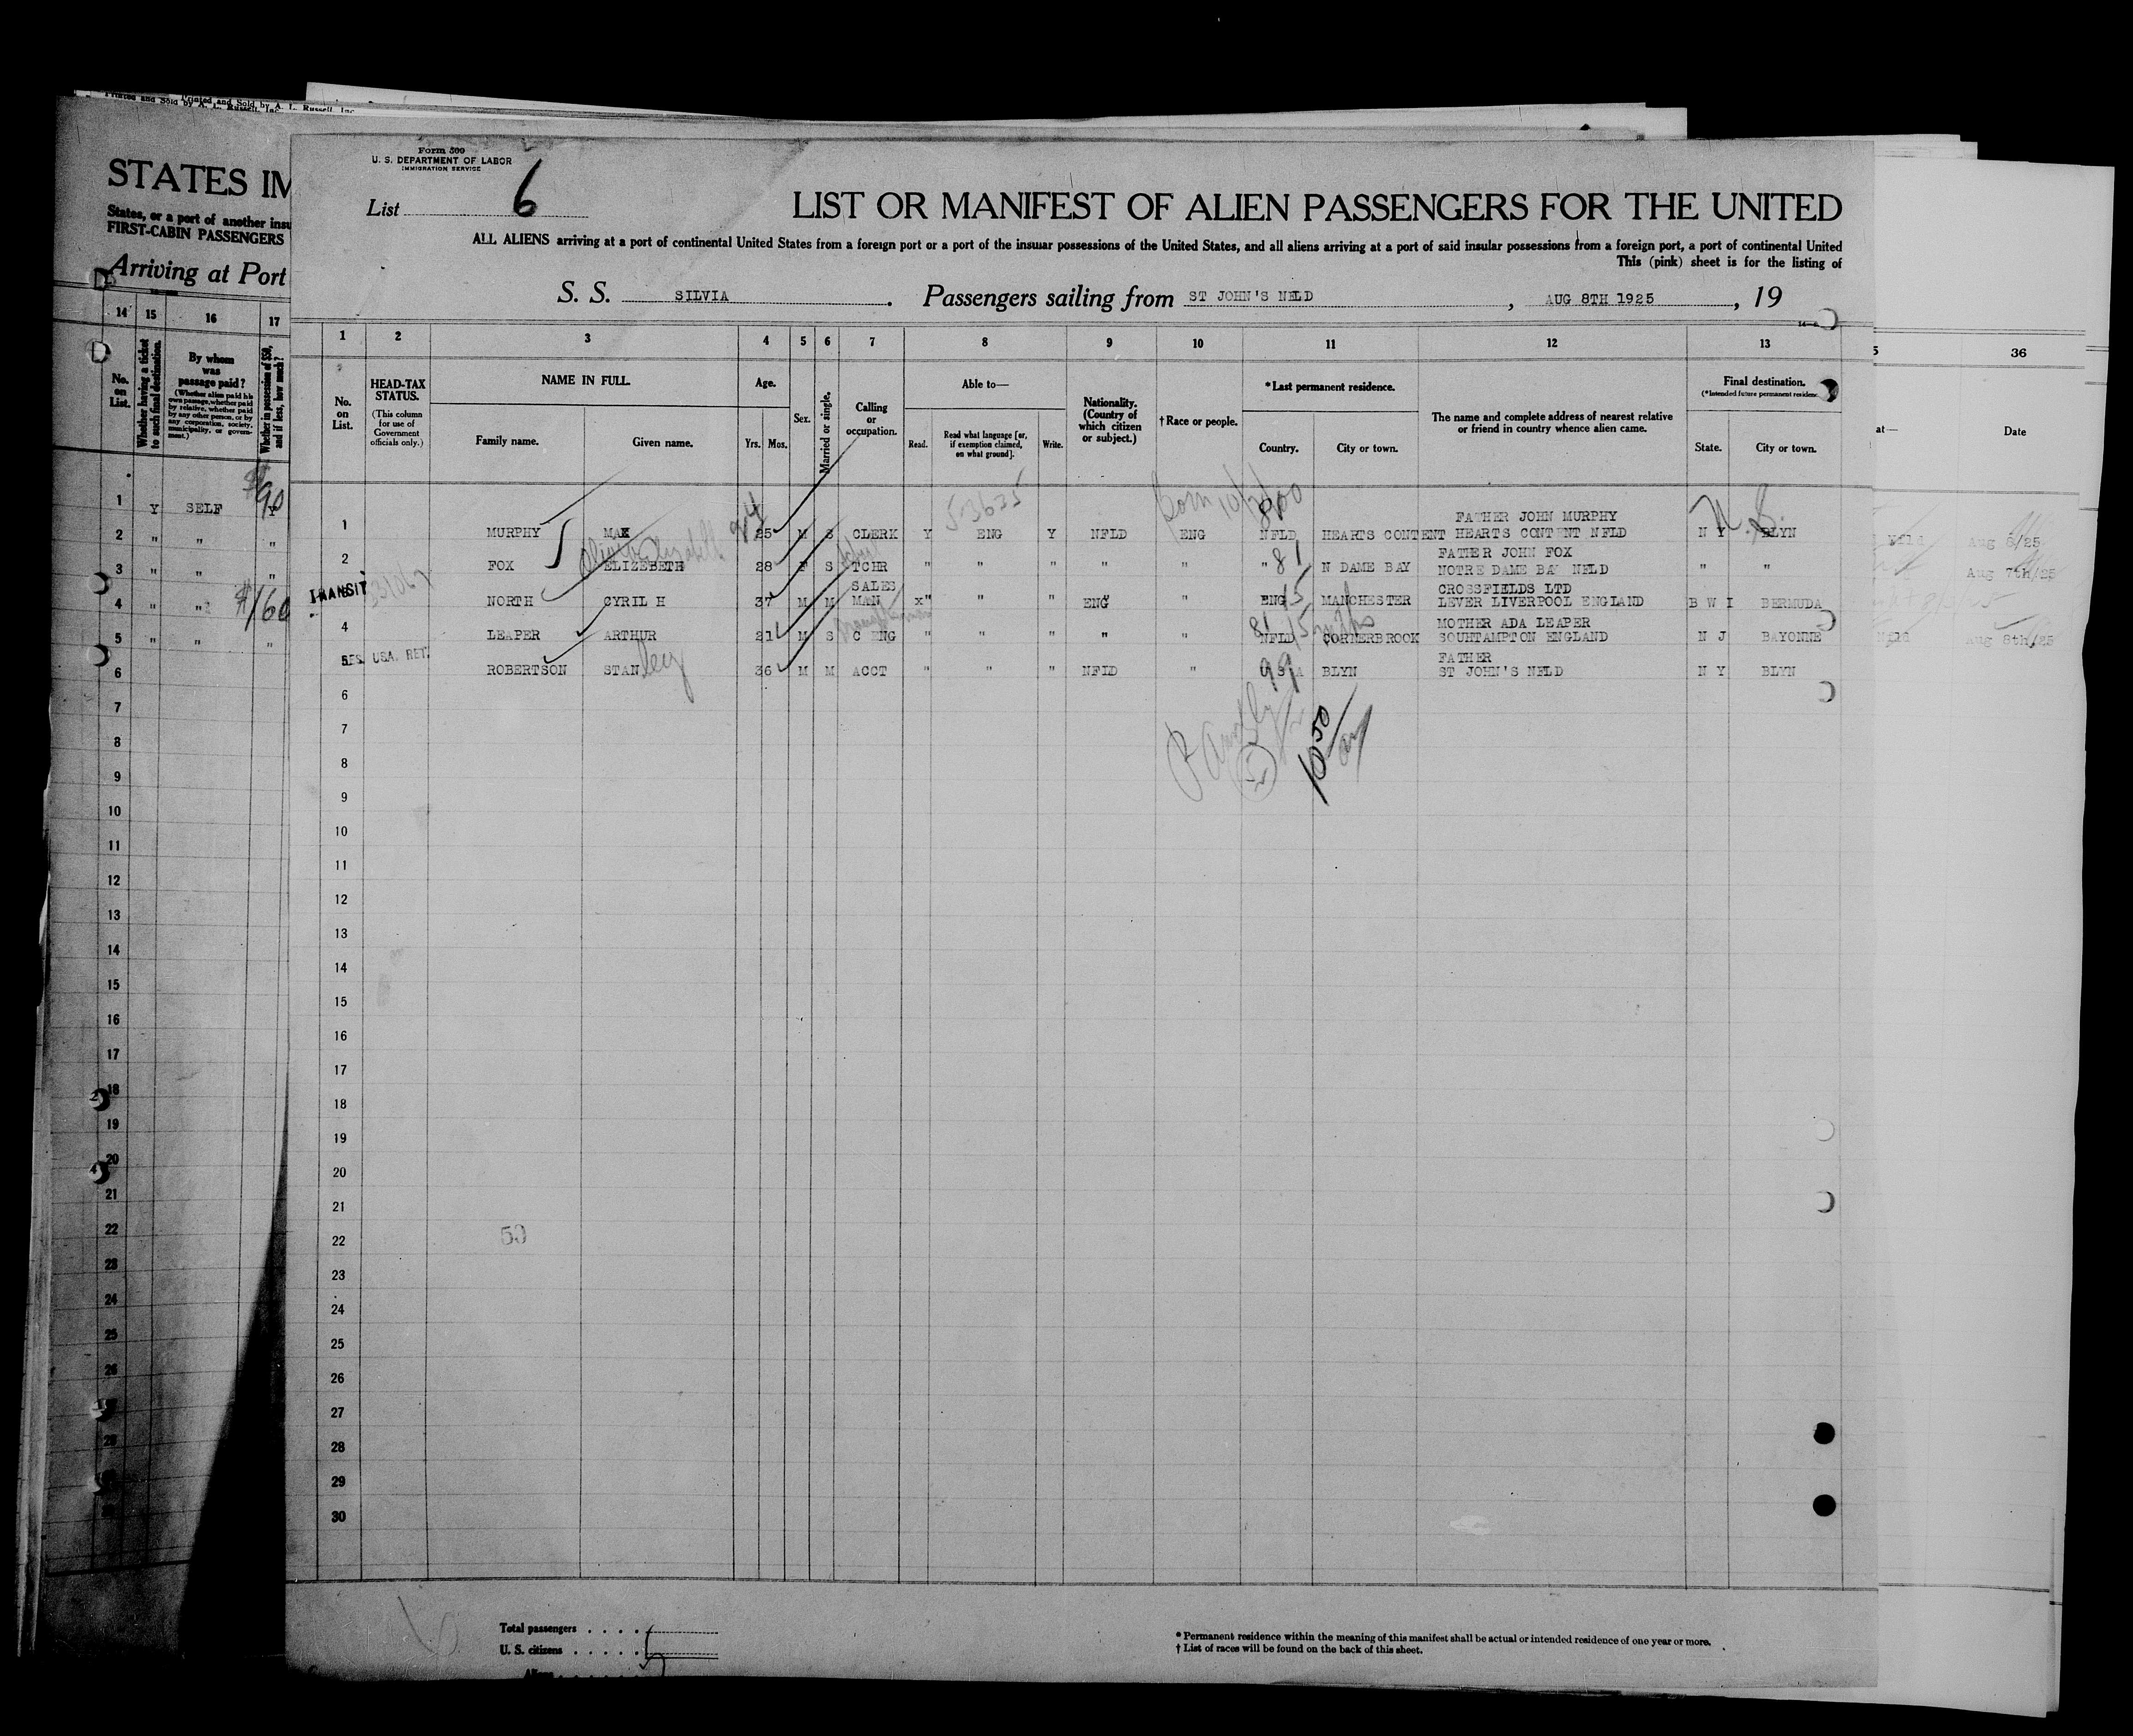 Printed and Sold by A. L. Russell, Inc
Form 500
U. S. DEPARTMENT OF LABOR
IMMIGRATION SERVICE
List 6
LIST OR MANIFEST OF ALIEN PASSENGERS FOR THE UNITED
ALL ALIENS arriving at a port of continental United States from a foreign port or a port of the insular possessions of the United States, and all aliens arriving at a port of said insular possessions from a foreign port, a port of continental United
This (pink) sheet is for the listing of
S. S. SILVIA. Passengers sailing from ST JOHN'S NFLD, AUG 8TH 1925, 19
1 2 3 4 5 6 7 8 9 10 11 12 13
No. on List.
HEAD-TAX STATUS.
(This column for use of Government officials only.)
NAME IN FULL.
Family name. Given name.
Age.
Yrs. Mos.
Sex.
Married or single.
Calling or occupation.
Able to—
Read. Read what language [or, if exemption claimed, on what ground]. Write.
Nationality. (Country of which citizen or subject.)
†Race or people.
*Last permanent residence.
Country. City or town.
The name and complete address of nearest relative or friend in country whence alien came.
Final destination.
(*Intended future permanent residence
State. City or town.
53635
FATHER JOHN MURPHY
1 MURPHY MAX 25 M S CLERK Y ENG Y NFLD ENG NFLD HEARTS CONTENT HEARTS CONTENT NFLD N Y BLYN
FATHER JOHN FOX
2 FOX ELIZEBETH 28 F S TCHR " " " " " " 81 N DAME BAY NOTRE DAME BAY NFLD " "
TRANSIT
SALES CROSSFIELDS LTD
NORTH CYRIL H 37 M M MAN x" " " ENG " ENG 15 MANCHESTER LEVER LIVERPOOL ENGLAND B W I BERMUDA
MOTHER ADA LEAPER
4 LEAPER ARTHUR 21 M S C ENG " " " " " NFLD CORNERBROOK SOUHTAMPTON ENGLAND N J BAYONNE
RES. USA. RET. FATHER
5 ROBERTSON STANley 36 M M ACCT " " " NFLD " U S A 99 BLYN ST JOHN'S NFLD N Y BLYN
6
7
8
9
10
11
12
13
14
15
16
17
18
19
20
21
22
50
23
24
25
26
27
28
29
30
Total passengers
U. S. citizens
Aliens
* Permanent residence within the meaning of this manifest shall be actual or intended residence of one year or more.
† List of races will be found on the back of this sheet.
STATES IM
States, or a port of another insu
FIRST-CABIN PASSENGERS
Arriving at Port
14 15 16 17
No. on List.
Whether having a ticket to such final destination.
By whom was passage paid?
(Whether alien paid his own passage, whether paid by relative, whether paid by any other person, or by any corporation, society, municipality, or government.)
Whether in possession of $50, and if less, how much?
$90
1 Y SELF Y
2 " " "
3 " " "
4 " " $160
5 " " "
6
7
8
9
10
11
12
13
14
15
16
17
18
19
20
21
22
23
24
25
26
36
at—
Date
Aug 6/25
Aug 7th/25
Nfld Aug 8th/25